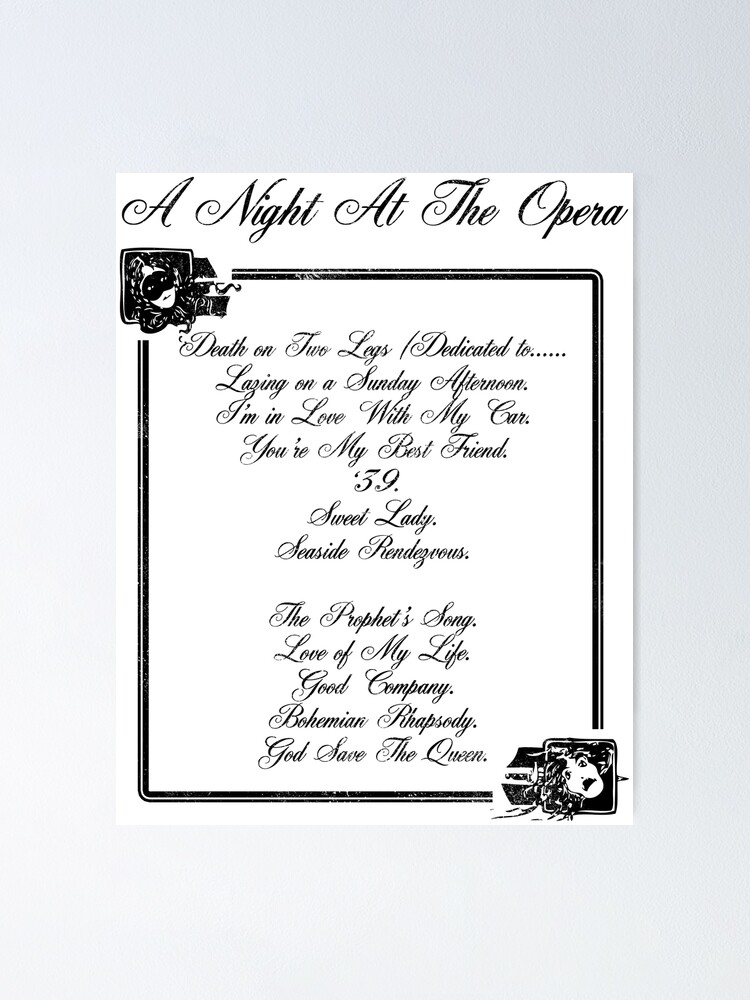 A Night At The Opera
'Death on Two Legs (Dedicated to......
Lazing on a Sunday Afternoon.
I'm in Love With My Car.
You're My Best Friend.
'39.
Sweet Lady.
Seaside Rendezvous.
The Prophet's Song.
Love of My Life.
Good Company.
Bohemian Rhapsody.
God Save The Queen.